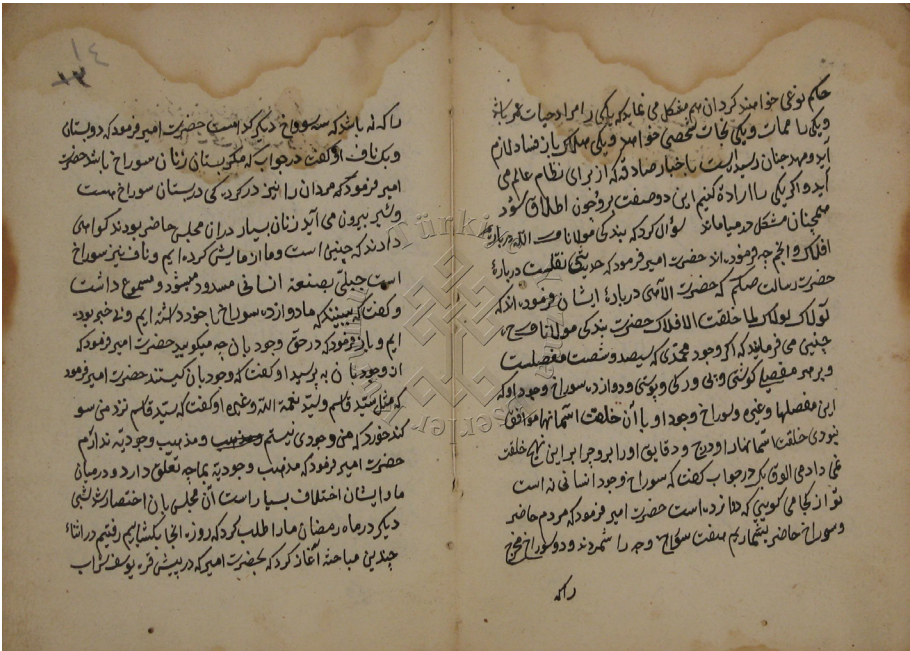 حکم نوعی خواهند کرد آن هم مشکل می نماید که یکی را مراد حیات غیر باشد
و یکی را ممات و یکی نجات شخصی خواهد و یکی هلاک باز فساد لازم
آید و مهد جنان رسیده است باخبار صادقه که از برای نظام عالم می
آید و اگر یکی را ارادة کنیم این دو صفت بر و چون اطلاق شود
همچنان مشکل در میاماند سؤال کرد که بندکی مولانا درباره
افلاک و انجم چه فرموده اند حضرت امیر فرمود که حدیثی نقلیست درباره
حضرت رسالت صلعم که حضرت الآهی درباره ایشان فرموده اند که
لولاک لولاک لما خلقت الافلاک حضرت بندکی مولانا
چنین می فرماید که اکر وجود محمدی که سیصد و شصت مفصلست
و بر هر مفصل کوشتی و پی و رکی و پوستی و دوازده سوراخ وجود او که
این مفصلها و غیره و سوراخ وجود او با آن خلقت اسمانها موافق
نبودی خلقت اسمانها را و درج و دقایق او را بروجرا بر این نهج خلقت
نمی دادمی الوق بک در جواب کفت که سوراخ وجود انسانی نه است
تو از کجا می کویی که دوازده است حضرت امیر فرمود که مردم حاضر
و سوراخ حاضر بشماریم هفت سوراخ وجه را شمردند و دو سوراخ مخرج
راکه
١٤
١٣
راکه نه باشد که سه سوراخ دیگر کدامست حضرت امیر فرمود که دو پستان
و یک ناف او کفت در جواب که مکر پستان زنان سوراخ باشد حضرت
امیر فرمود که مردان را نیز در کردکی در پستان سوراخ هست
و شیر بیرون می آید زنان بسیار در ان مجلس حاضر بودند کواهی
دادند که چنین است و ما آزمایش کرده ایم و ناف نیز سوراخ
است جبلی بصنعة انسانی مسدود میشود و مسموع داشت
و کفت که ببینید که ما دوازده سوراخ با خود داشته ایم و بی خبر بوده
ایم و باز فرمود که در حق وجودیان چه میکویید حضرت امیر فرمود که
از وجودیان به پرسید او کفت که وجودیان کیستند حضرت امیر فرمود
که مثل سید قاسم و سید نعمة الله و غیره او کفت که سید قاسم نزد من سو
کند خورد که من وجودی نیستم و مذهب و مذهب وجودیه ندارم
حضرت امیر فرمود که مذهب وجودیه بما چه تعلق دارد و در میان
ما و ایشان اختلاف بسیار است آن مجلس بان اختصار شد شبی
دیکر در ماه رمضان ما را طلب کرد که روزه انجا بکشاییم رفتیم در اثناء
چندین مباحثه آغاز کرد که بحضرت امیر که در پیش قره یوسف شراب
Türkiye